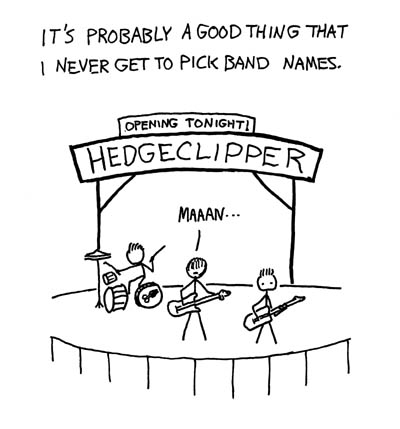 IT'S PROBABLY A GOOD THING THAT
I NEVER GET TO PICK BAND NAMES.
OPENING TONIGHT!
HEDGECLIPPER
MAAAN...